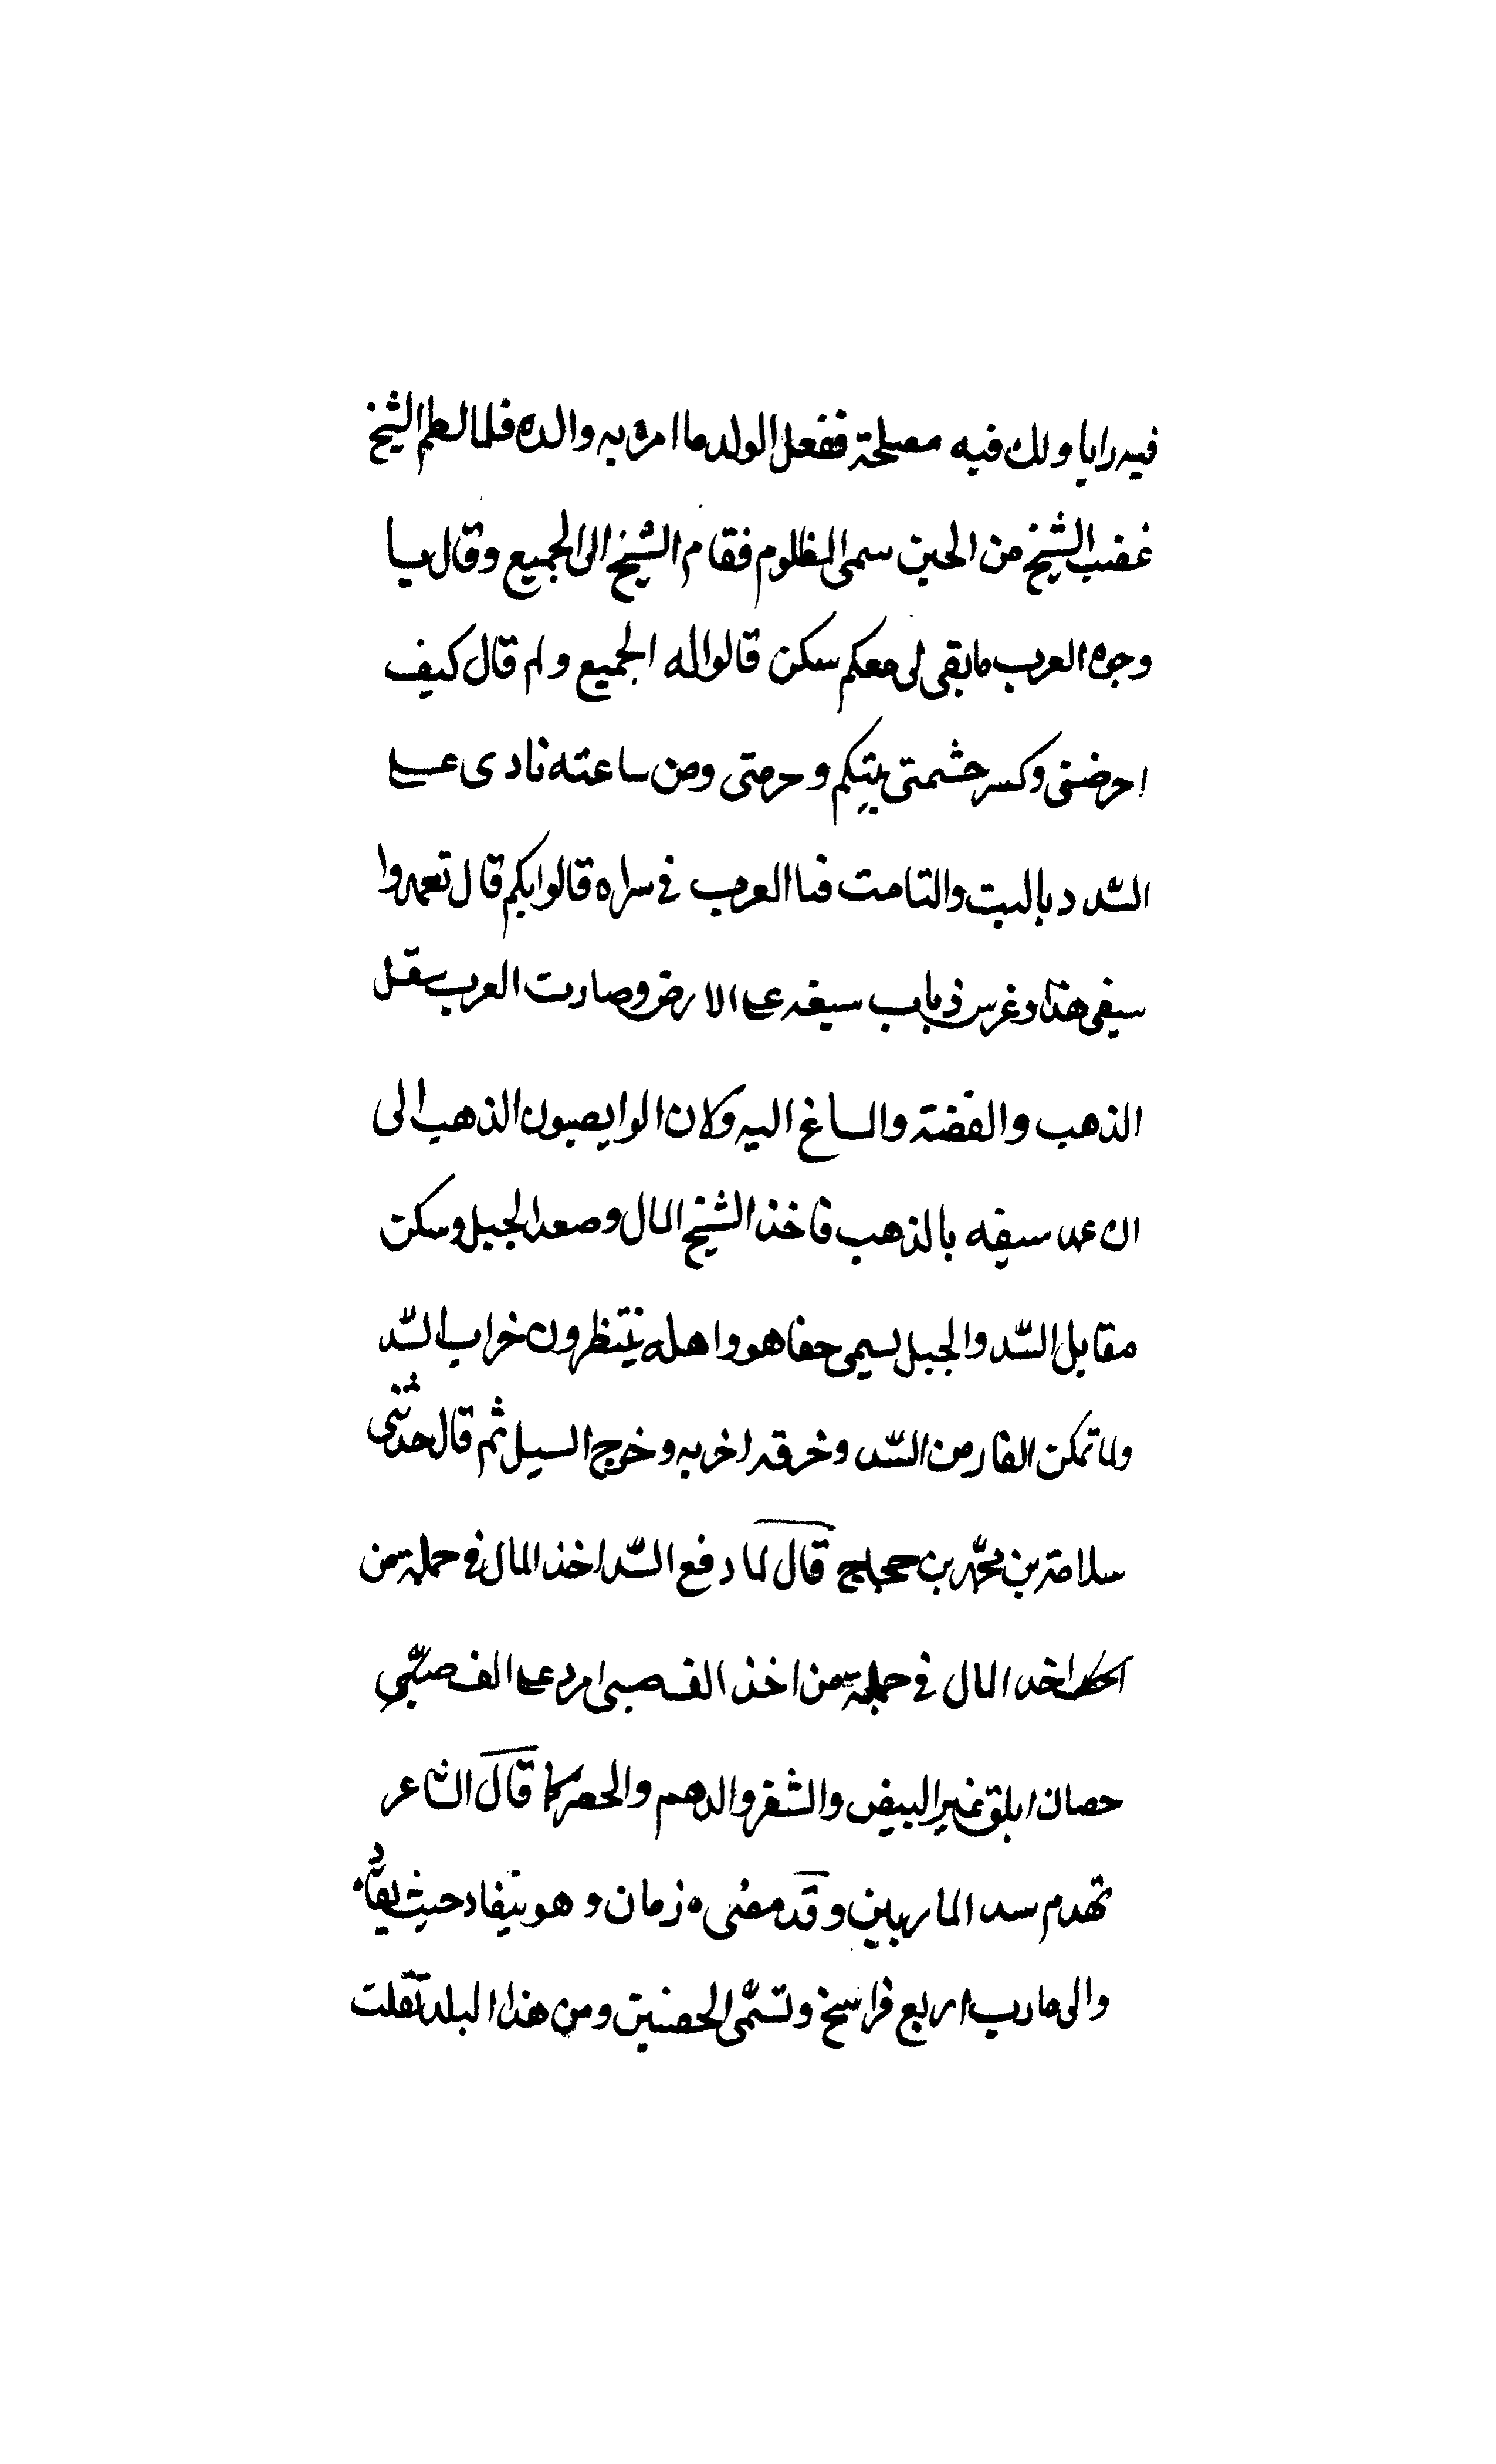 فيه رايا ولك فيه مصلحة ففعل الولد ما امره به والده فلما لطم الشيخ
غضب الشيخ من الحين سمى المظلوم فقام الشيخ الى الجميع وقال يا
وجوه العرب ما بقى لى معكم سكن قالوا له الجميع ولم قال كيف
احرضنى وكسر حشمتى بينكم وحرمتى ومن ساعته نادى على
السّدد بالبت والتامت فنا العرب فى سراه قالوا بكم قال تعمروا
سيفى هذا وغرس ذباب سيفه على الارض وصارت العرب سقل
الذهب والفضة والساغ اليه وكان الوا يصبون الذهب الى
ان عمد سيفه بالذهب فاخذ الشيخ المال وصعد الجبل وسكن
مقابل السّد والجبل يسمى حفا هو واهله ينتظرون خراب السّد
ولما تمكن الفار من السّد وخرقه اخربه وخرج السيل ثم قال حدثنى
سلامة بن محمّد بن حجاج قال لما دفع السّد اخذ المال فى جملة من
اخد المال فى جملة من اخذ الف صبى امرد على الف صبّى
حصان ابلق غير البيض والشقر والدهم والحمر كما قال الشاعر
تهدم سد الماربين وقد مضى ه زمان وهو ينقاد حيث يقاد
والى مارب اربع فراسخ وتسمّى الحصنين ومن هذا البلد نقلت